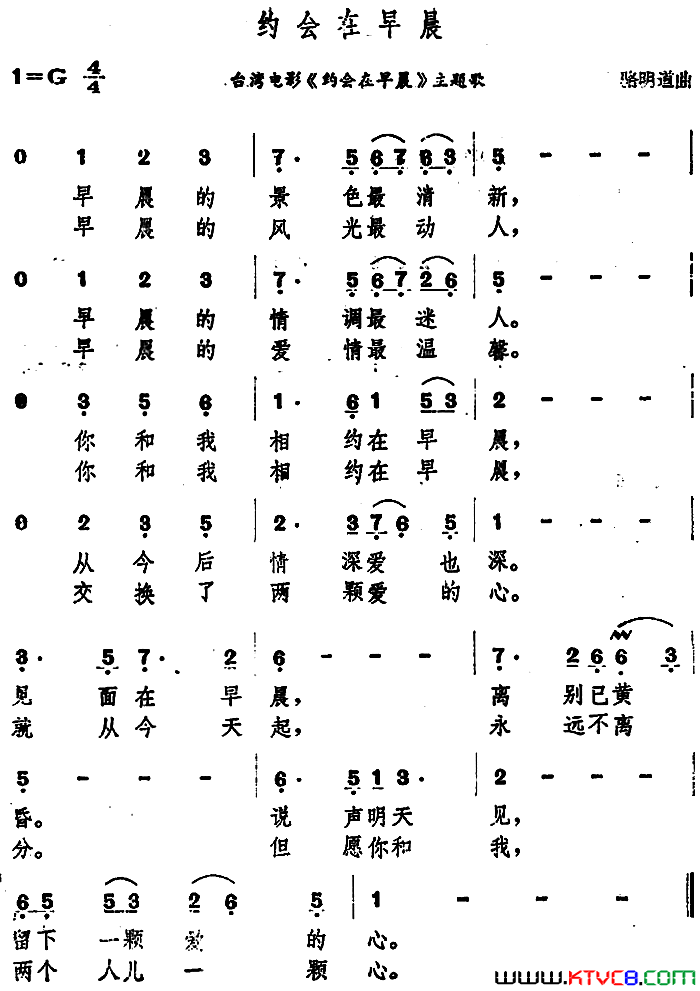 约会在早晨
1=G 4/4 台湾电影《约会在早晨》主题歌 骆明道曲
0 1 2 3 7· 5 6 7 6 3 5 - - -
早晨的景色最清新,
早晨的风光最动人,
0 1 2 3 7· 5 6 7 2 6 5 - - -
早晨的情调最迷人。
早晨的爱情最温馨。
0 3 5 6 1· 6 1 5 3 2 - - -
你和我相约在早晨,
你和我相约在早晨,
0 2 3 5 2· 3 7 6 5 1 - - -
从今后情深爱也深。
交换了两颗爱的心。
3· 5 7· 2 6 - - - 7· 2 6 6 3
见面在早晨, 离别已黄
就从今天起, 永远不离
5 - - - 6· 5 1 3· 2 - - -
昏。 说声明天见,
分。 但愿你和我,
6 5 5 3 2 6 5 1 - - -
留下一颗爱的心。
两个人儿一颗心。
www.KTVC8.com